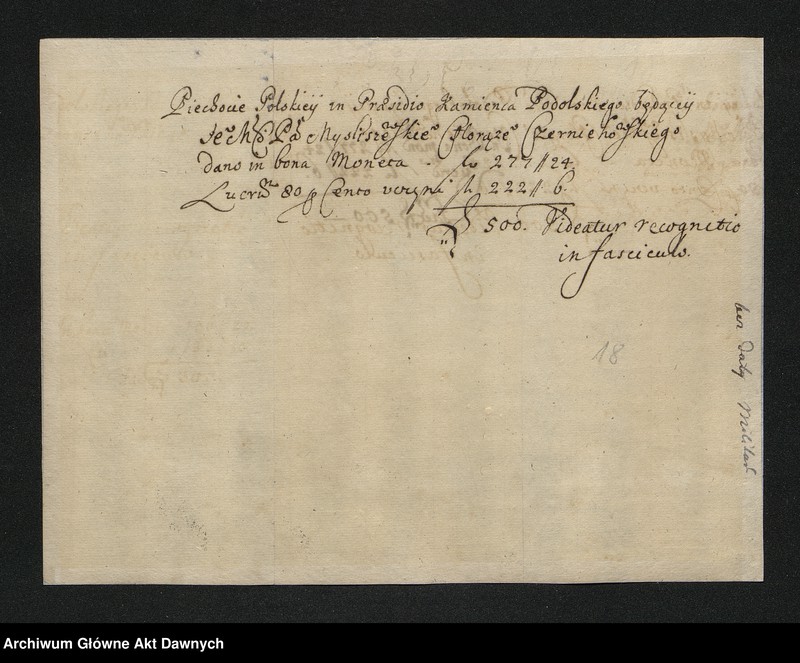 Piechocie Polskiey in Præsidio Kamienca Podolskiego będącey
Pa Myslisze skie Chorąże Czerniehoskiego
dano in bona Moneta 277 // 24.
80 p Cento 222 // 6.
500. Videatur recognitio
in fasciculo.
18
bez daty Militaria
Archiwum Główne Akt Dawnych